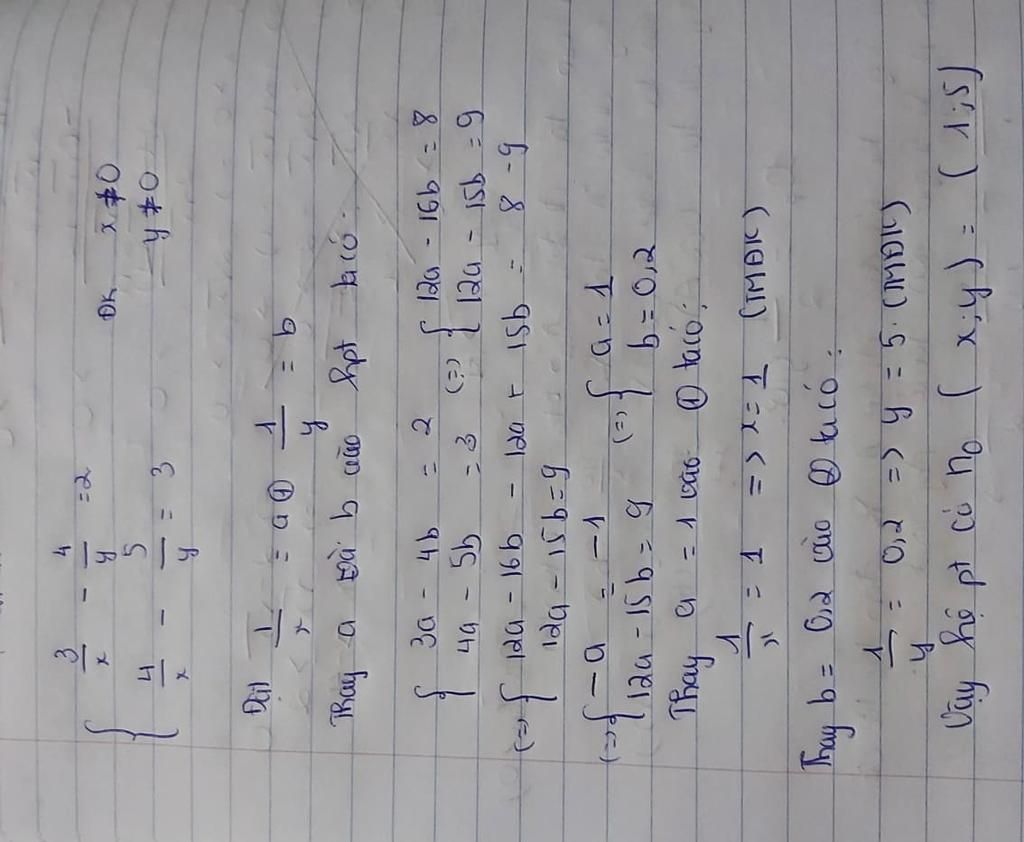 { 3/x - 4/y = 2 ĐK x ≠ 0
4/x - 5/y = 3 y ≠ 0
Đặt 1/x = a ① 1/y = b
Thay a và b vào hpt ta có:
{ 3a - 4b = 2 (=) { 12a - 16b = 8
4a - 5b = 3 12a - 15b = 9
(=) { 12a - 16b - 12a + 15b = 8 - 9
12a - 15b = 9
(=) { - a = - 1 (=) { a = 1
12a - 15b = 9 b = 0,2
Thay a = 1 vào ① ta có:
1/x = 1 => x = 1 (TMĐK)
Thay b = 0,2 vào ② ta có:
1/y = 0,2 => y = 5. (TMĐK)
Vậy hệ pt có n0 (x;y) = (1;5)